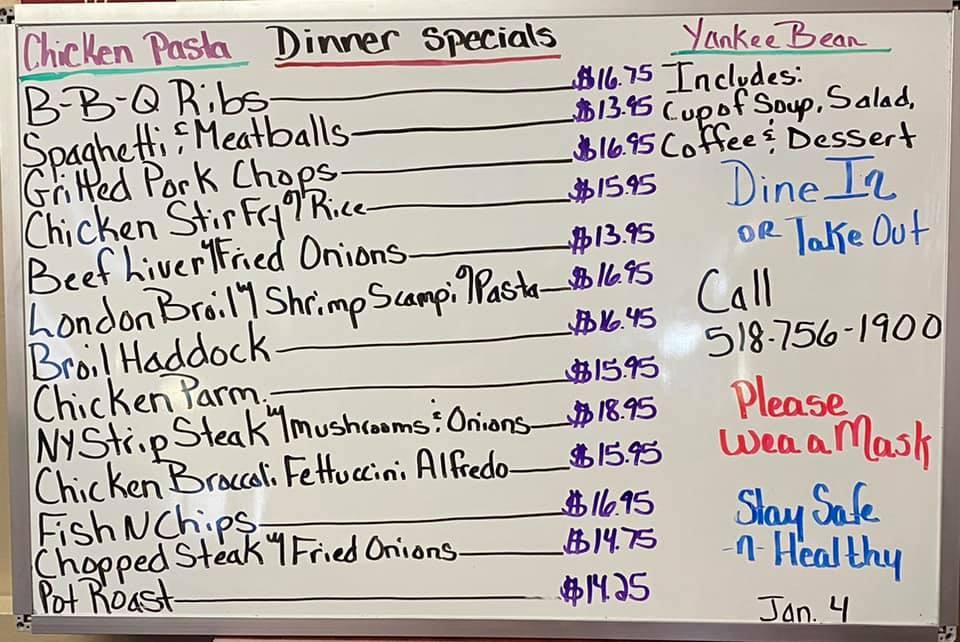 Chicken Pasta Dinner Specials Yankee Bean
B-B-Q Ribs $16.75
Spaghetti & Meatballs $13.95
Grilled Pork Chops $16.95
Chicken Stir Fry w/ Rice $15.95
Beef Liver w/ Fried Onions $13.95
London Broil w/ Shrimp Scampi w/ Pasta $16.95
Broil Haddock $16.45
Chicken Parm. $15.95
NY Strip Steak w/ Mushrooms & Onions $18.95
Chicken Broccoli Fettuccini Alfredo $15.95
Fish N Chips $16.95
Chopped Steak w/ Fried Onions $14.75
Pot Roast $14.25
Includes:
Cup of Soup, Salad,
Coffee & Dessert
Dine In
OR Take Out
Call
518-756-1900
Please
Wea a Mask
Stay Safe
-n- Healthy
Jan. 4